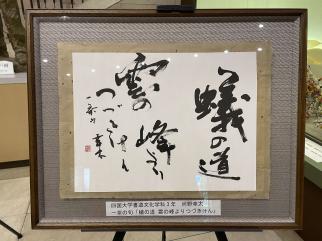 蟻の道
雲の峰より
つづきけん
四国大学書道文化学科3年
一茶の句「蟻の道 雲の峰よりつづきけん」